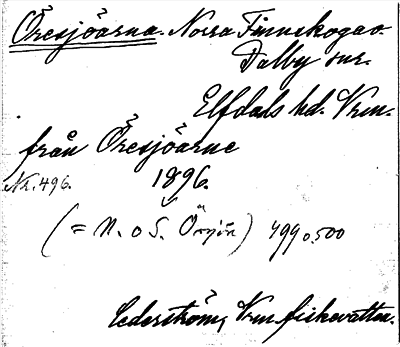 Öresjöarna. Norra Finnskoga o.
Dalby snr.
Elfdals hd. Vrm.
från Öresjöarne
Nr. 496. 1896.
(= N. o S. Örsjön) 499 o. 500
Cederström, Vrm fiskevatten.